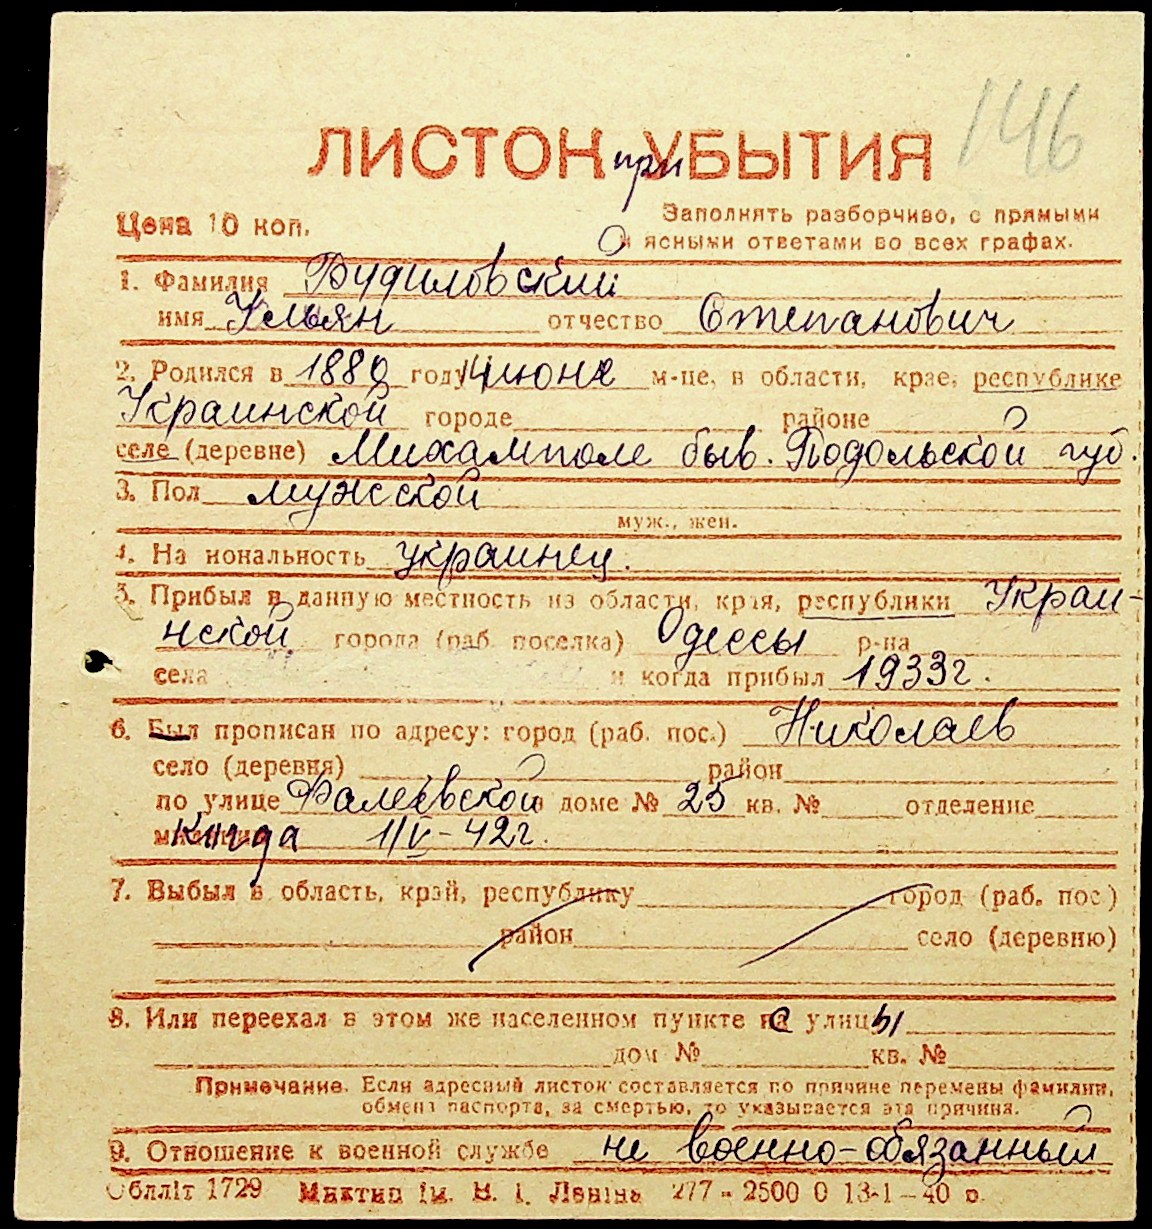 146
ЛИСТОК при УБЫТИЯ
Цена 10 коп.
Заполнять разборчиво, с прямыми
и ясными ответами во всех графах.
1. Фамилия Будиловский
имя Ульян отчество Степанович
2. Родился в 1880 году 14 июня м-це, в области, крае, республике
Украинской городе районе
селе (деревне) Михамполе быв. Подольской губ.
3. Пол мужской
муж., жен.
4. На иональность украинец.
5. Прибыл в данную местность из области, края, республики Украи-
нской города (раб. поселка) Одессы р-на
села и когда прибыл 1933г.
6. Был прописан по адресу: город (раб. пос.) Николаев
село (деревня) район
по улице Фалеевской в доме № 25 кв. № отделение
Когда 1/V-42г.
7. Выбыл в область, край, республику город (раб. пос.)
район село (деревню)
8. Или переехал в этом же населенном пункте с улицы
дом № кв. №
Примечание. Если адресный листок составляется по причине перемены фамилии,
обмена паспорта, за смертью, то указывается эта причина.
9. Отношение к военной службе не военно-обязанный
Облліт 1729 Миктип ім. В. І. Леніна 277 - 2500 0 13-1-40 р.